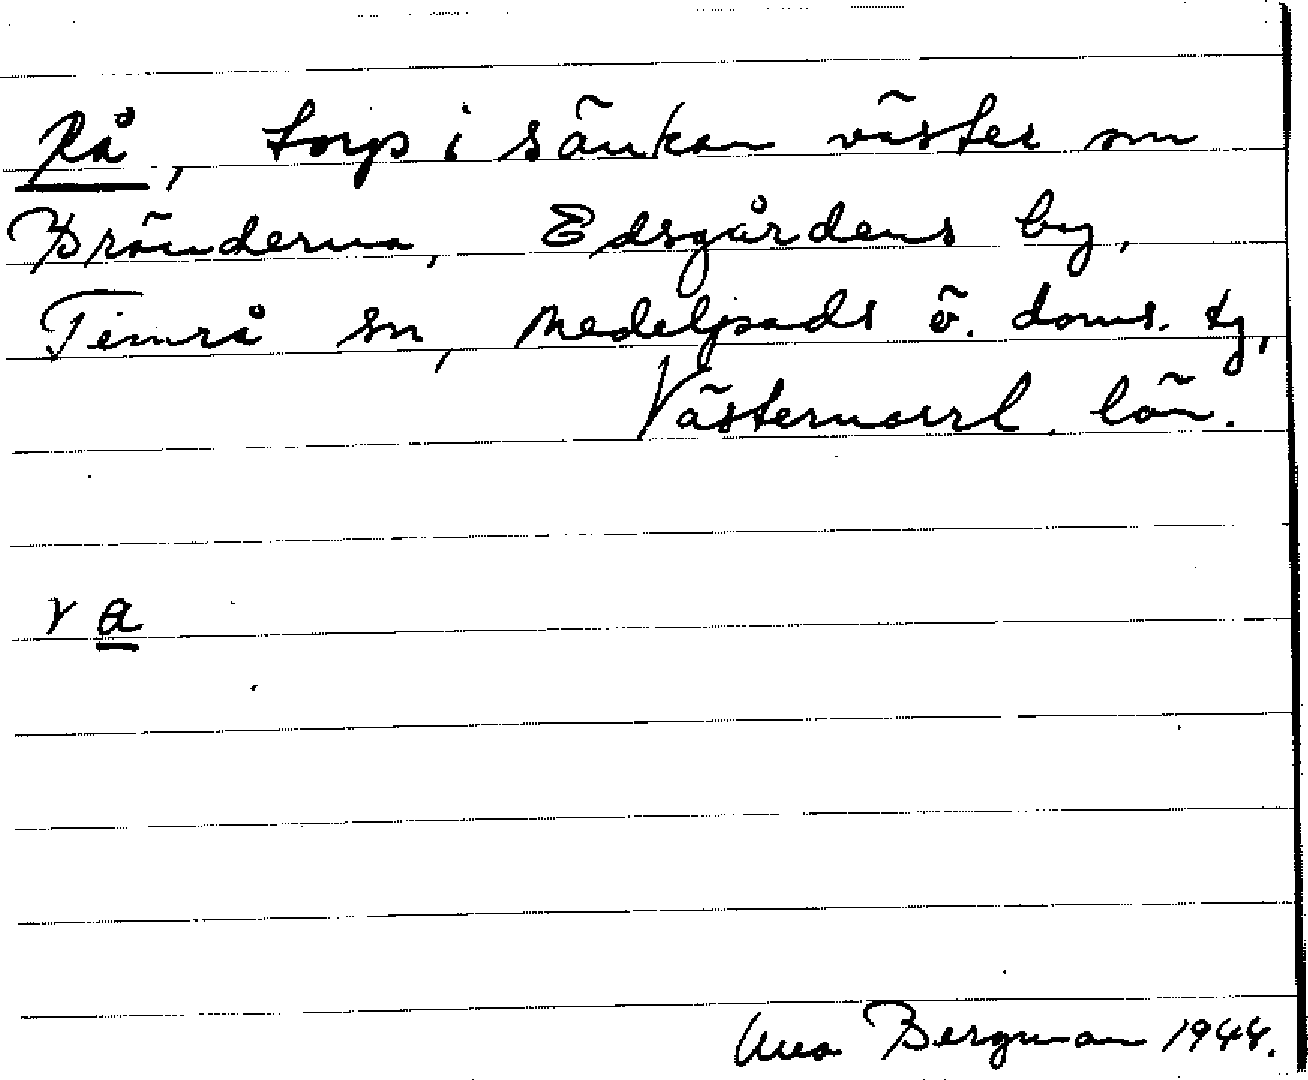 Rå, torp i sänkan väster om
Bränderna, Edsgårdens by,
Timrå sn, Medelpads ö. doms. tg,
Västernorrl. län.
r a
Anna Bergman 1944.